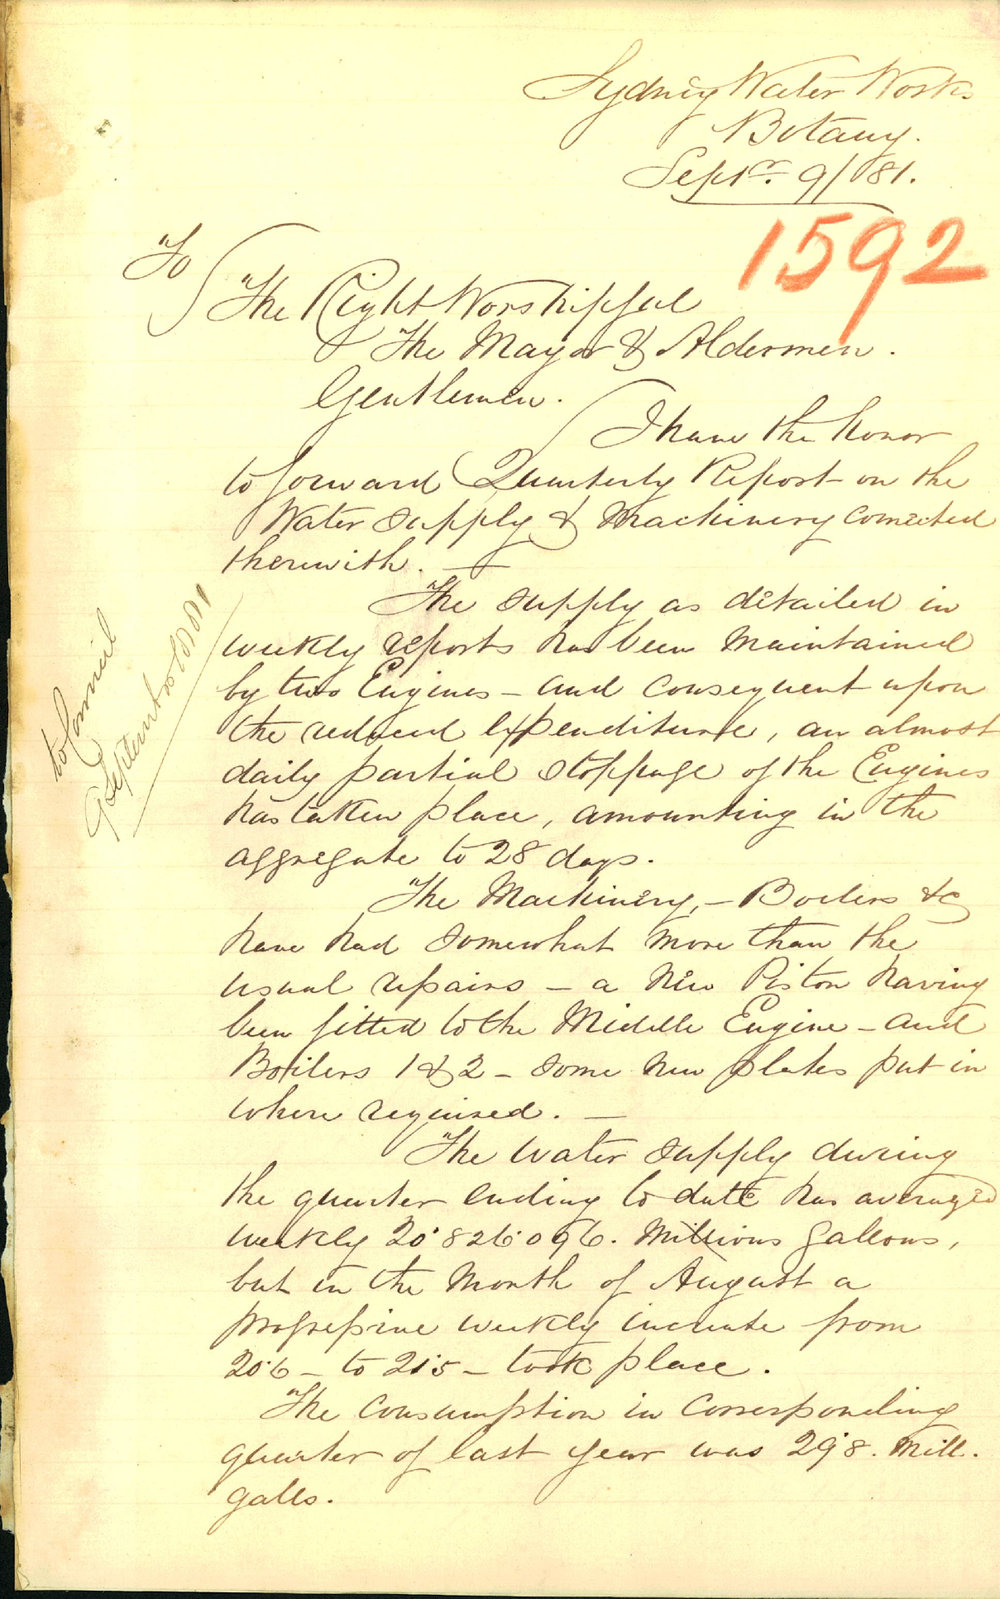 Sydney Water Works
Botany.
Septr. 9/81.
1592
To
The Right Worshipful
The Mayor & Aldermen.
Gentlemen.
I have the honor
to forward Quarterly Report on the
Water supply & Machinery connected
therewith. —
The supply as detailed in
weekly reports has been maintained
by two Engines – and consequent upon
the reduced expenditure, an almost
daily partial stoppage of the Engines
has taken place, amounting in the
aggregate to 28 days.
The Machinery, – Boilers &c
have had somewhat more than the
usual repairs – a New Piston having
been fitted to the Middle Engine – and
Boilers 1 & 2 – some new plates put in
where required. —
The water supply during
the quarter ending to date has averaged
weekly 20·826·096. Millions gallons,
but in the Month of August a
progressive weekly increase from
20·6 – to 21·5 – took place.
The Consumption in Corresponding
quarter of last year was 29·8. Mill.
galls.
to Council
9 September 1881